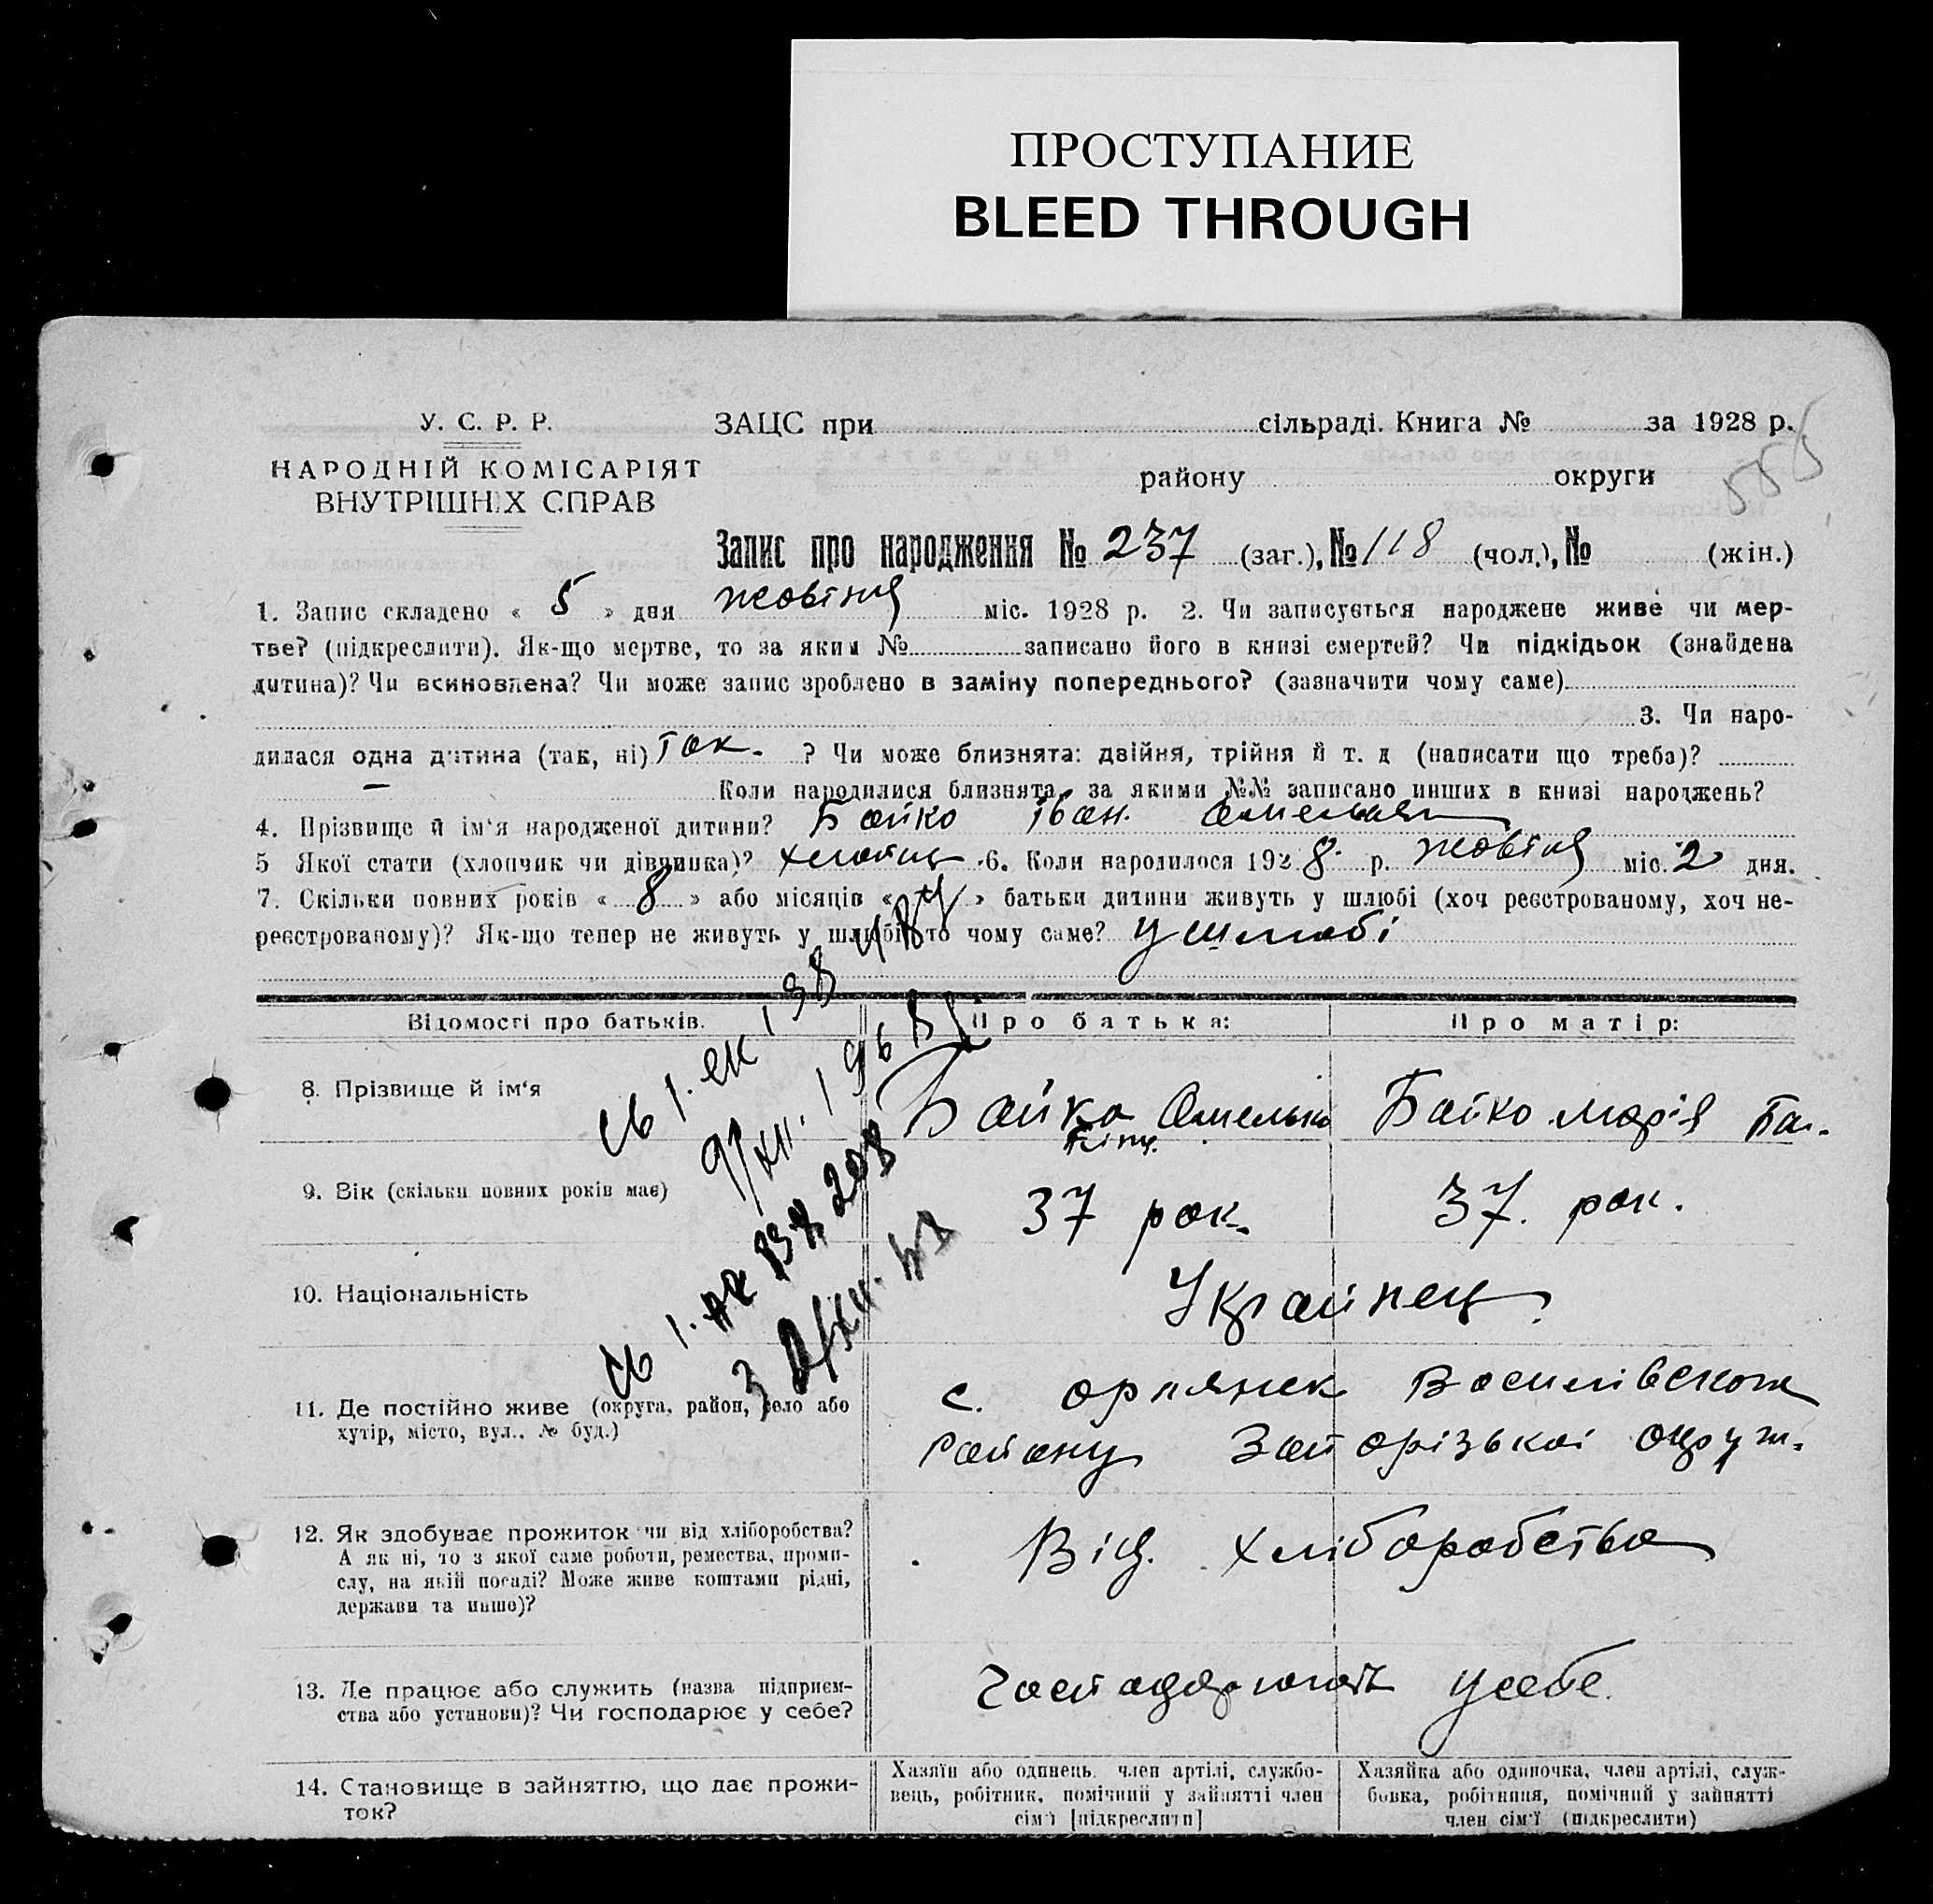 ПРОСТУПАНИЕ
BLEED THROUGH
У. С. Р. Р.
НАРОДНІЙ КОМІСАРІЯТ
ВНУТРІШНІХ СПРАВ
ЗАЦС при сільраді. Книга № за 1928 р.
району округи
555
Запис про народження № 237 (заг.), № 118 (чол.), № (жін.)
1. Запис складено « 5 » дня жовтня міс. 1928 р. 2. Чи записується народжене живе чи мер-
тве? (підкреслити). Як-що мертве, то за яким № записано його в книзі смертей? Чи підкідьок (знайдена
дитина)? Чи всиновлена? Чи може запис зроблено в заміну попереднього? (зазначити чому саме)
3. Чи наро-
дилася одна дитина (так, ні) так. ? Чи може близнята: двійня, трійня й т. д (написати що треба)?
— Коли народилися близнята, за якими №№ записано инших в книзі народжень?
4. Прізвище й ім‘я народженої дитини? Байко Іван.
5 Якої стати (хлопчик чи дівчинка)? хлопець 6. Коли народилося 192 8 р. жовтня міс. 2 дня.
7. Скільки повних років « 8 » або місяців « » батьки дитини живуть у шлюбі (хоч реєстрованому, хоч не-
реєстрованому)? Як-що тепер не живуть у шлюбі то чому саме? у шлюбі
Відомості про батьків. Про батька: Про матір:
8. Прізвище й ім‘я Байко Омелько Байко Марія
9. Вік (скільки повних років має) 37 рок. 37. рок.
10. Національність Україйнець
11. Де постійно живе (округа, район, село або
хутір, місто, вул., № буд.)
с. Орлянск Василівского
району Запорізькоі окруж.
12. Як здобуває прожиток чи від хліборобства?
А як ні, то з якої саме роботи, ремества, проми-
слу, на якій посаді? Може живе коштами рідні,
держави та инше)?
Від. хліборобства
13. Де працює або служить (назва підприєм-
ства або установи)? Чи господарює у себе?
Господарюють у себе.
14. Становище в зайняттю, що дає прожи-
ток?
Хазяїн або одинець, член артілі, службо-
вець, робітник, помічний у зайнятті член
сім‘ї [підкреслити]
Хазяйка або одиночка, член артілі, служ-
бовка, робітниця, помічний у зайнятті
член сім‘ї (підкреслити)